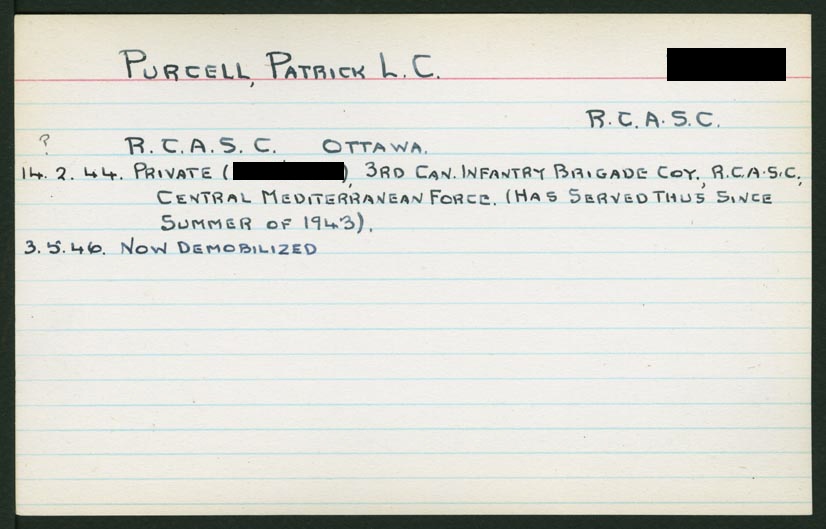 PURCELL, PATRICK L. C.
R.C.A.S.C.
? R.C.A.S.C. OTTAWA.
14. 2. 44. PRIVATE ( ), 3RD CAN. INFANTRY BRIGADE COY., R.C.A.S.C,
CENTRAL MEDITERRANEAN FORCE. (HAS SERVED THUS SINCE
SUMMER OF 1943).
3. 5. 46. NOW DEMOBILIZED